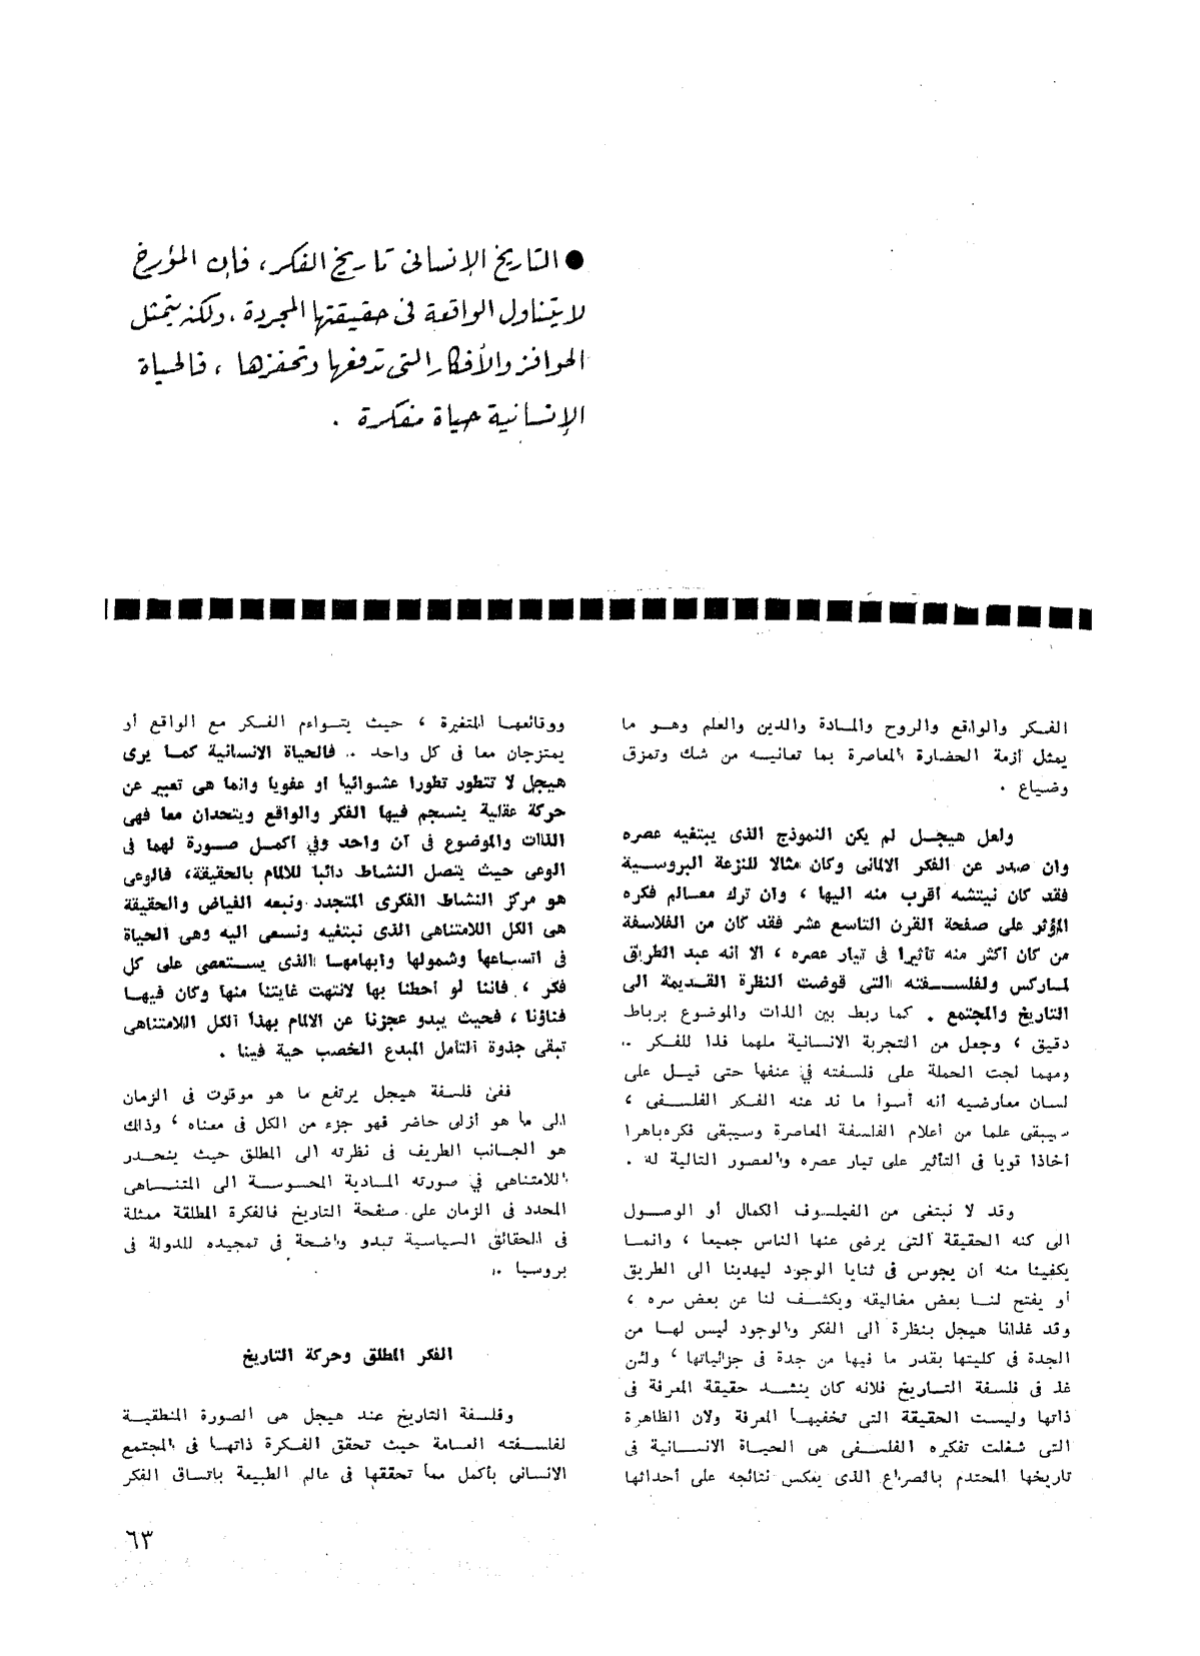 ● التاريخ الإنسانى تاريخ الفكر، فإن المؤرخ
لا يتناول الواقعة فى حقيقتها المجردة، ولكنه يتمثل
الحوافز والأفكار التى تدفعها وتحفزها ، فالحياة
الإنسانية حياة مفكرة .
الفكر والواقع والروح والمادة والدين والعلم وهو ما
يمثل أزمة الحضارة المعاصرة بما تعانيه من شك وتمزق
وضياع .
ولعل هيجل لم يكن النموذج الذى يبتغيه عصره
وان صدر عن الفكر الالمانى وكان مثالا للنزعة البروسية
فقد كان نيتشه أقرب منه اليها ، وان ترك معالم فكره
المؤثر على صفحة القرن التاسع عشر فقد كان من الفلاسفة
من كان أكثر منه تأثيرا فى تيار عصره ، الا انه عبد الطريق
لماركس ولفلسفته التى قوضت النظرة القديمة الى
التاريخ والمجتمع . كما ربط بين الذات والموضوع برباط
دقيق ، وجعل من التجربة الانسانية ملهما فذا للفكر ..
ومهما لجت الحملة على فلسفته في عنفها حتى قيل على
لسان معارضيه أنه أسوأ ما ند عنه الفكر الفلسفى ،
سيبقى علما من أعلام الفلسفة المعاصرة وسيبقى فكره باهرا
أخاذا قويا فى التأثير على تيار عصره والعصور التالية له .
وقد لا نبتغى من الفيلسوف الكمال أو الوصول
الى كنه الحقيقة التى يرضى عنها الناس جميعا ، وانما
يكفينا منه أن يجوس فى ثنايا الوجود ليهدينا الى الطريق
أو يفتح لنا بعض مغاليقه ويكشف لنا عن بعض سره ،
وقد غذانا هيجل بنظرة الى الفكر والوجود ليس لها من
الجدة فى كليتها بقدر ما فيها من جدة فى جزئياتها ، ولئن
غذ فى فلسفة التاريخ فلانه كان ينشد حقيقة المعرفة فى
ذاتها وليست الحقيقة التى تخفيها المعرفة ولان الظاهرة
التى شغلت تفكيره الفلسفى هى الحياة الانسانية فى
تاريخها المحتدم بالصراع الذى يعكس نتائجه على أحداثها
ووقائعها المتغيرة ، حيث يتواءم الفكر مع الواقع أو
يمتزجان معا فى كل واحد .. فالحياة الانسانية كما يرى
هيجل لا تتطور تطورا عشوائيا او عفويا وانما هى تعبير عن
حركة عقلية ينسجم فيها الفكر والواقع ويتحدان معا فهى
الذات والموضوع فى آن واحد وفي أكمل صورة لهما فى
الوعى حيث يتصل النشاط دائبا للالمام بالحقيقة، فالوعى
هو مركز النشاط الفكرى المتجدد ونبعه الفياض والحقيقة
هى الكل اللامتناهى الذى نبتغيه ونسعى اليه وهى الحياة
فى اتساعها وشمولها وابهامها الذى يستعصى على كل
فكر ، فاننا لو أحطنا بها لانتهت غايتنا منها وكان فيها
فناؤنا ، فحيث يبدو عجزنا عن الالمام بهذا الكل اللامتناهى
تبقى جذوة التأمل المبدع الخصب حية فينا .
ففى فلسفة هيجل يرتفع ما هو موقوت فى الزمان
الى ما هو أزلى حاضر فهو جزء من الكل فى معناه ، وذلك
هو الجانب الطريف فى نظرته الى المطلق حيث ينحدر
اللامتناهى في صورته المادية المحسوسة الى المتناهى
المحدد فى الزمان على صفحة التاريخ فالفكرة المطلقة ممثلة
فى الحقائق السياسية تبدو واضحة فى تمجيده للدولة فى
بروسيا ..
الفكر المطلق وحركة التاريخ
وفلسفة التاريخ عند هيجل هى الصورة المنطقية
لفلسفته العامة حيث تحقق الفكرة ذاتها فى المجتمع
الانسانى بأكمل مما تحققها فى عالم الطبيعة باتساق الفكر
٦٣